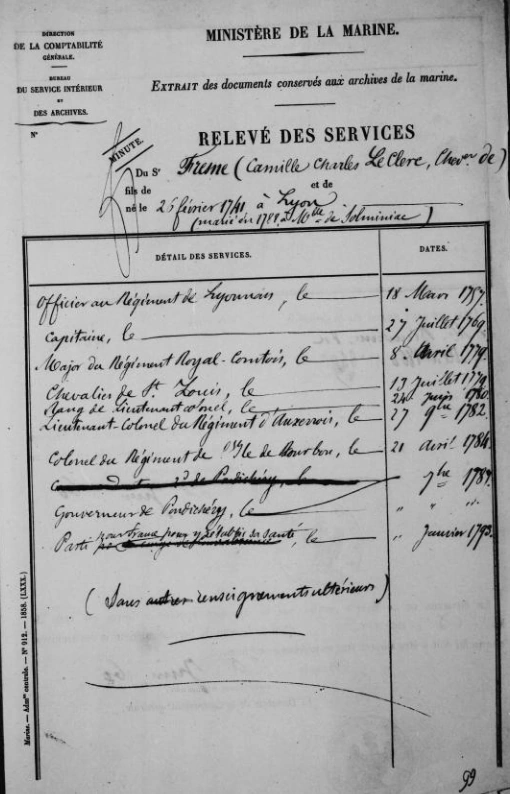 DIRECTION
DE LA COMPTABILITÉ
GÉNÉRALE.
BUREAU
DU SERVICE INTÉRIEUR
ET
DES ARCHIVES.
N°
MINISTÈRE DE LA MARINE.
EXTRAIT des documents conservés aux archives de la marine.
MINUTE.
RELEVÉ DES SERVICES
Du Sr Fresne (Camille Charles Le Clerc, Chever de)
fils de et de
né le 26 février 1741 à Lyon
(marié en 1788 à Mlle de Solminiac)
DÉTAIL DES SERVICES. DATES.
Officier au Régiment de Lyonnais, le 18 Mars 1757.
Capitaine, le 27 Juillet 1769.
Major du Régiment Royal-Comtois, le 8 Avril 1779.
Chevalier de St Louis, le 13 Juillet 1779
Rang de Lieutenant colonel, le 24 Juin 1780.
Lieutenant-Colonel du Régiment d'Auxerrois, le 27 9bre 1782.
Colonel du Régiment de l'Ile de Bourbon, le 21 Avril 1784.
2d de Pondichéry, le 7bre 1789.
Gouverneur de Pondichéry, le " " "
Parti pour France pour y rétablir sa santé, le " Janvier 1793.
(Sans autres renseignements ultérieurs)
Marine. — Admon centrale. — N° 912. — 1858. (LXXX.)
99